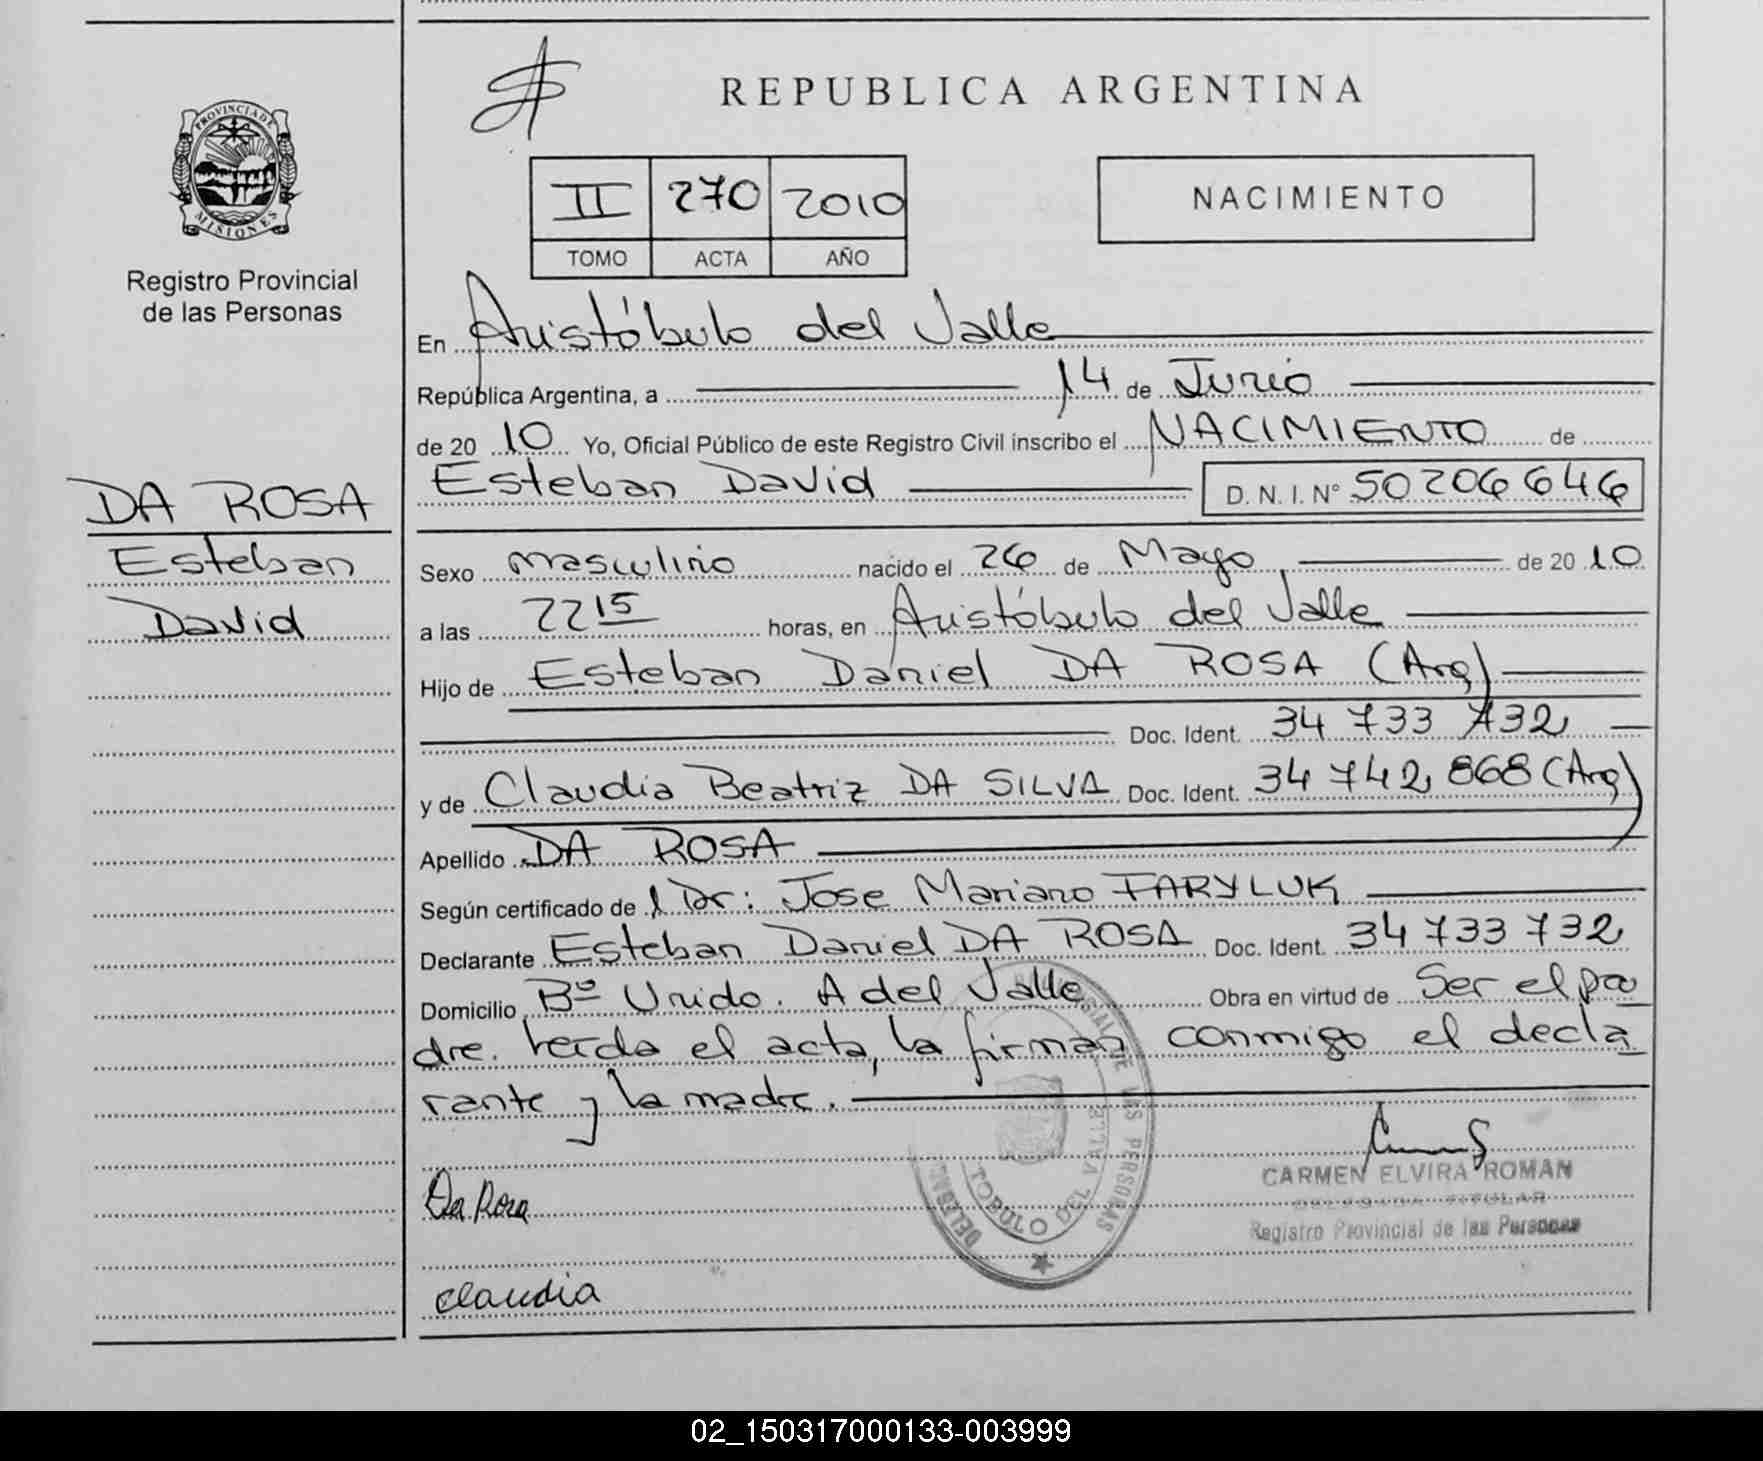 REPUBLICA ARGENTINA
PROVINCIA DE
MISIONES
Registro Provincial
de las Personas
II 270 2010
TOMO ACTA AÑO
NACIMIENTO
En Aristóbulo del Valle
República Argentina, a 14 de Junio
de 20 10 Yo, Oficial Público de este Registro Civil inscribo el NACIMIENTO de
Esteban David D. N. I. Nº 50206646
DA ROSA
Esteban
David
Sexo masculino nacido el 26 de Mayo de 20 10
a las 22 15 horas, en Aristóbulo del Valle
Hijo de Esteban Daniel DA ROSA (Arg)
Doc. Ident. 34 733 732
y de Claudia Beatriz DA SILVA Doc. Ident. 34 742 868 (Arg)
Apellido DA ROSA
Según certificado de l Dr: Jose Mariano FARYLUK
Declarante Esteban Daniel DA ROSA Doc. Ident. 34 733 732
Domicilio Bº Unido. A del Valle Obra en virtud de Ser el pa
dre. Leída el acta, la firman conmigo el decla
rante y la madre.
CARMEN ELVIRA ROMAN
DELEGADA TITULAR
Registro Provincial de las Personas
Da Rosa
DE LAS PERSONAS
TOBULO DEL VALLE
claudia
02_150317000133-003999